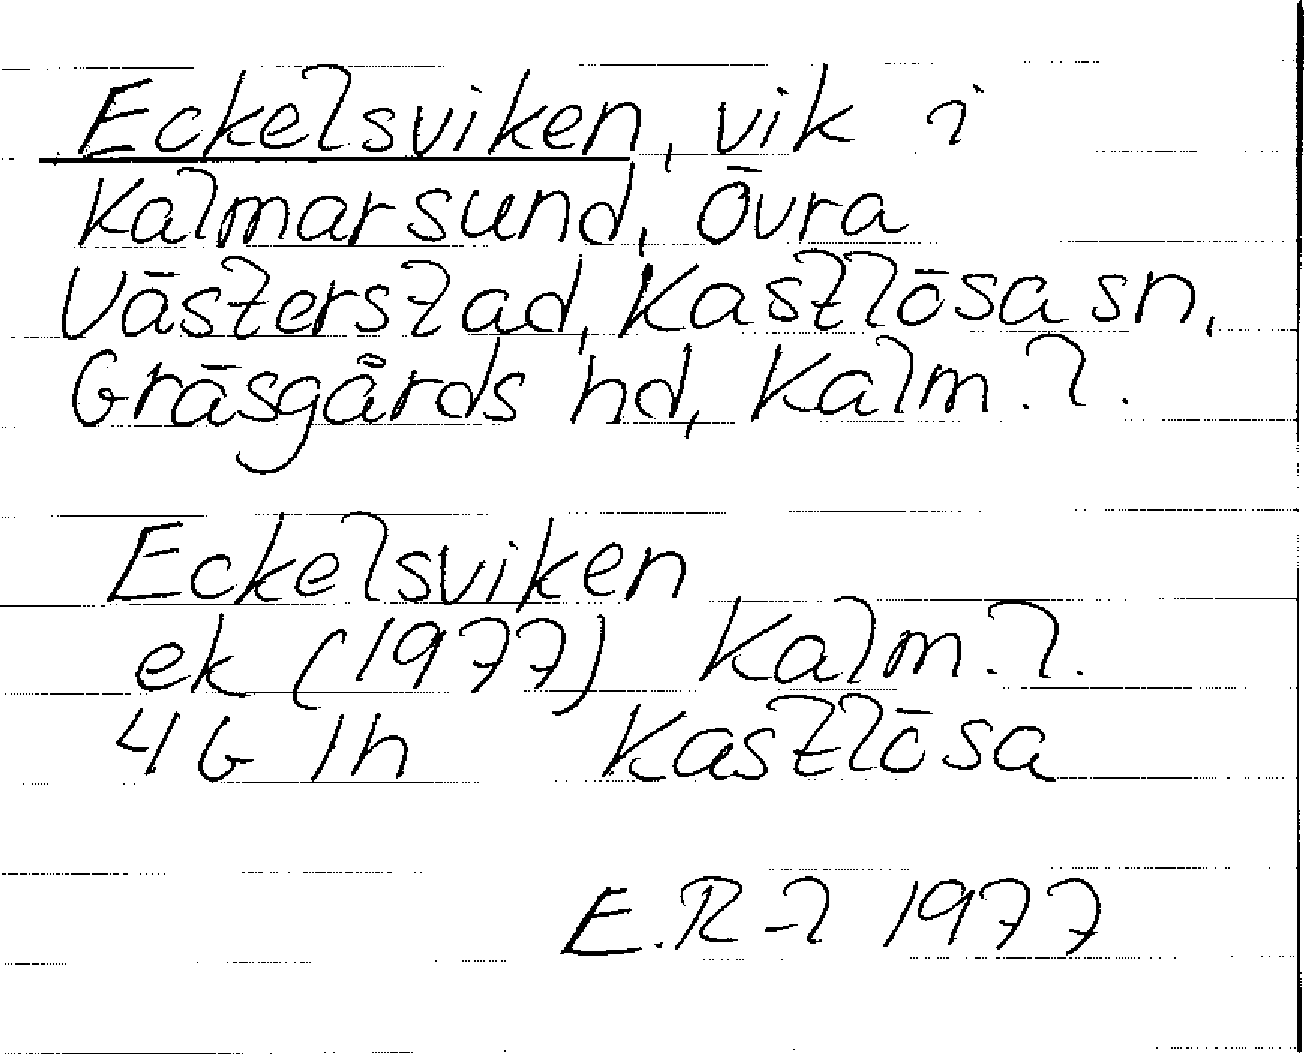 Eckelsviken, vik i
Kalmarsund, Övra
Västerstad, Kastlösa sn,
Gräsgårds hd, Kalm. l.
Eckelsviken
ek (1977) Kalm. l.
4G 1h Kastlösa
E.R-l 1977